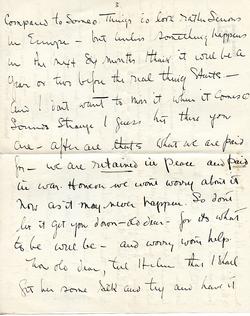 2
Compared to Borneo. Things is look rather serious
in Europe - but unless something happens
in the next 8 months there it will be a
year or two before the real thing starts -
and I don't want to miss it when it comes
Sounds strange I guess but there you
are - after all that's what we are paid
for - we are retained in peace and paid
in war. However we wont worry about it
now as it may never happen. So dont
let it get you down - old dear - for its what
to be will be - and worry wont help.
Now old dear, tell Helen that I shall
get her some silk and try and have it